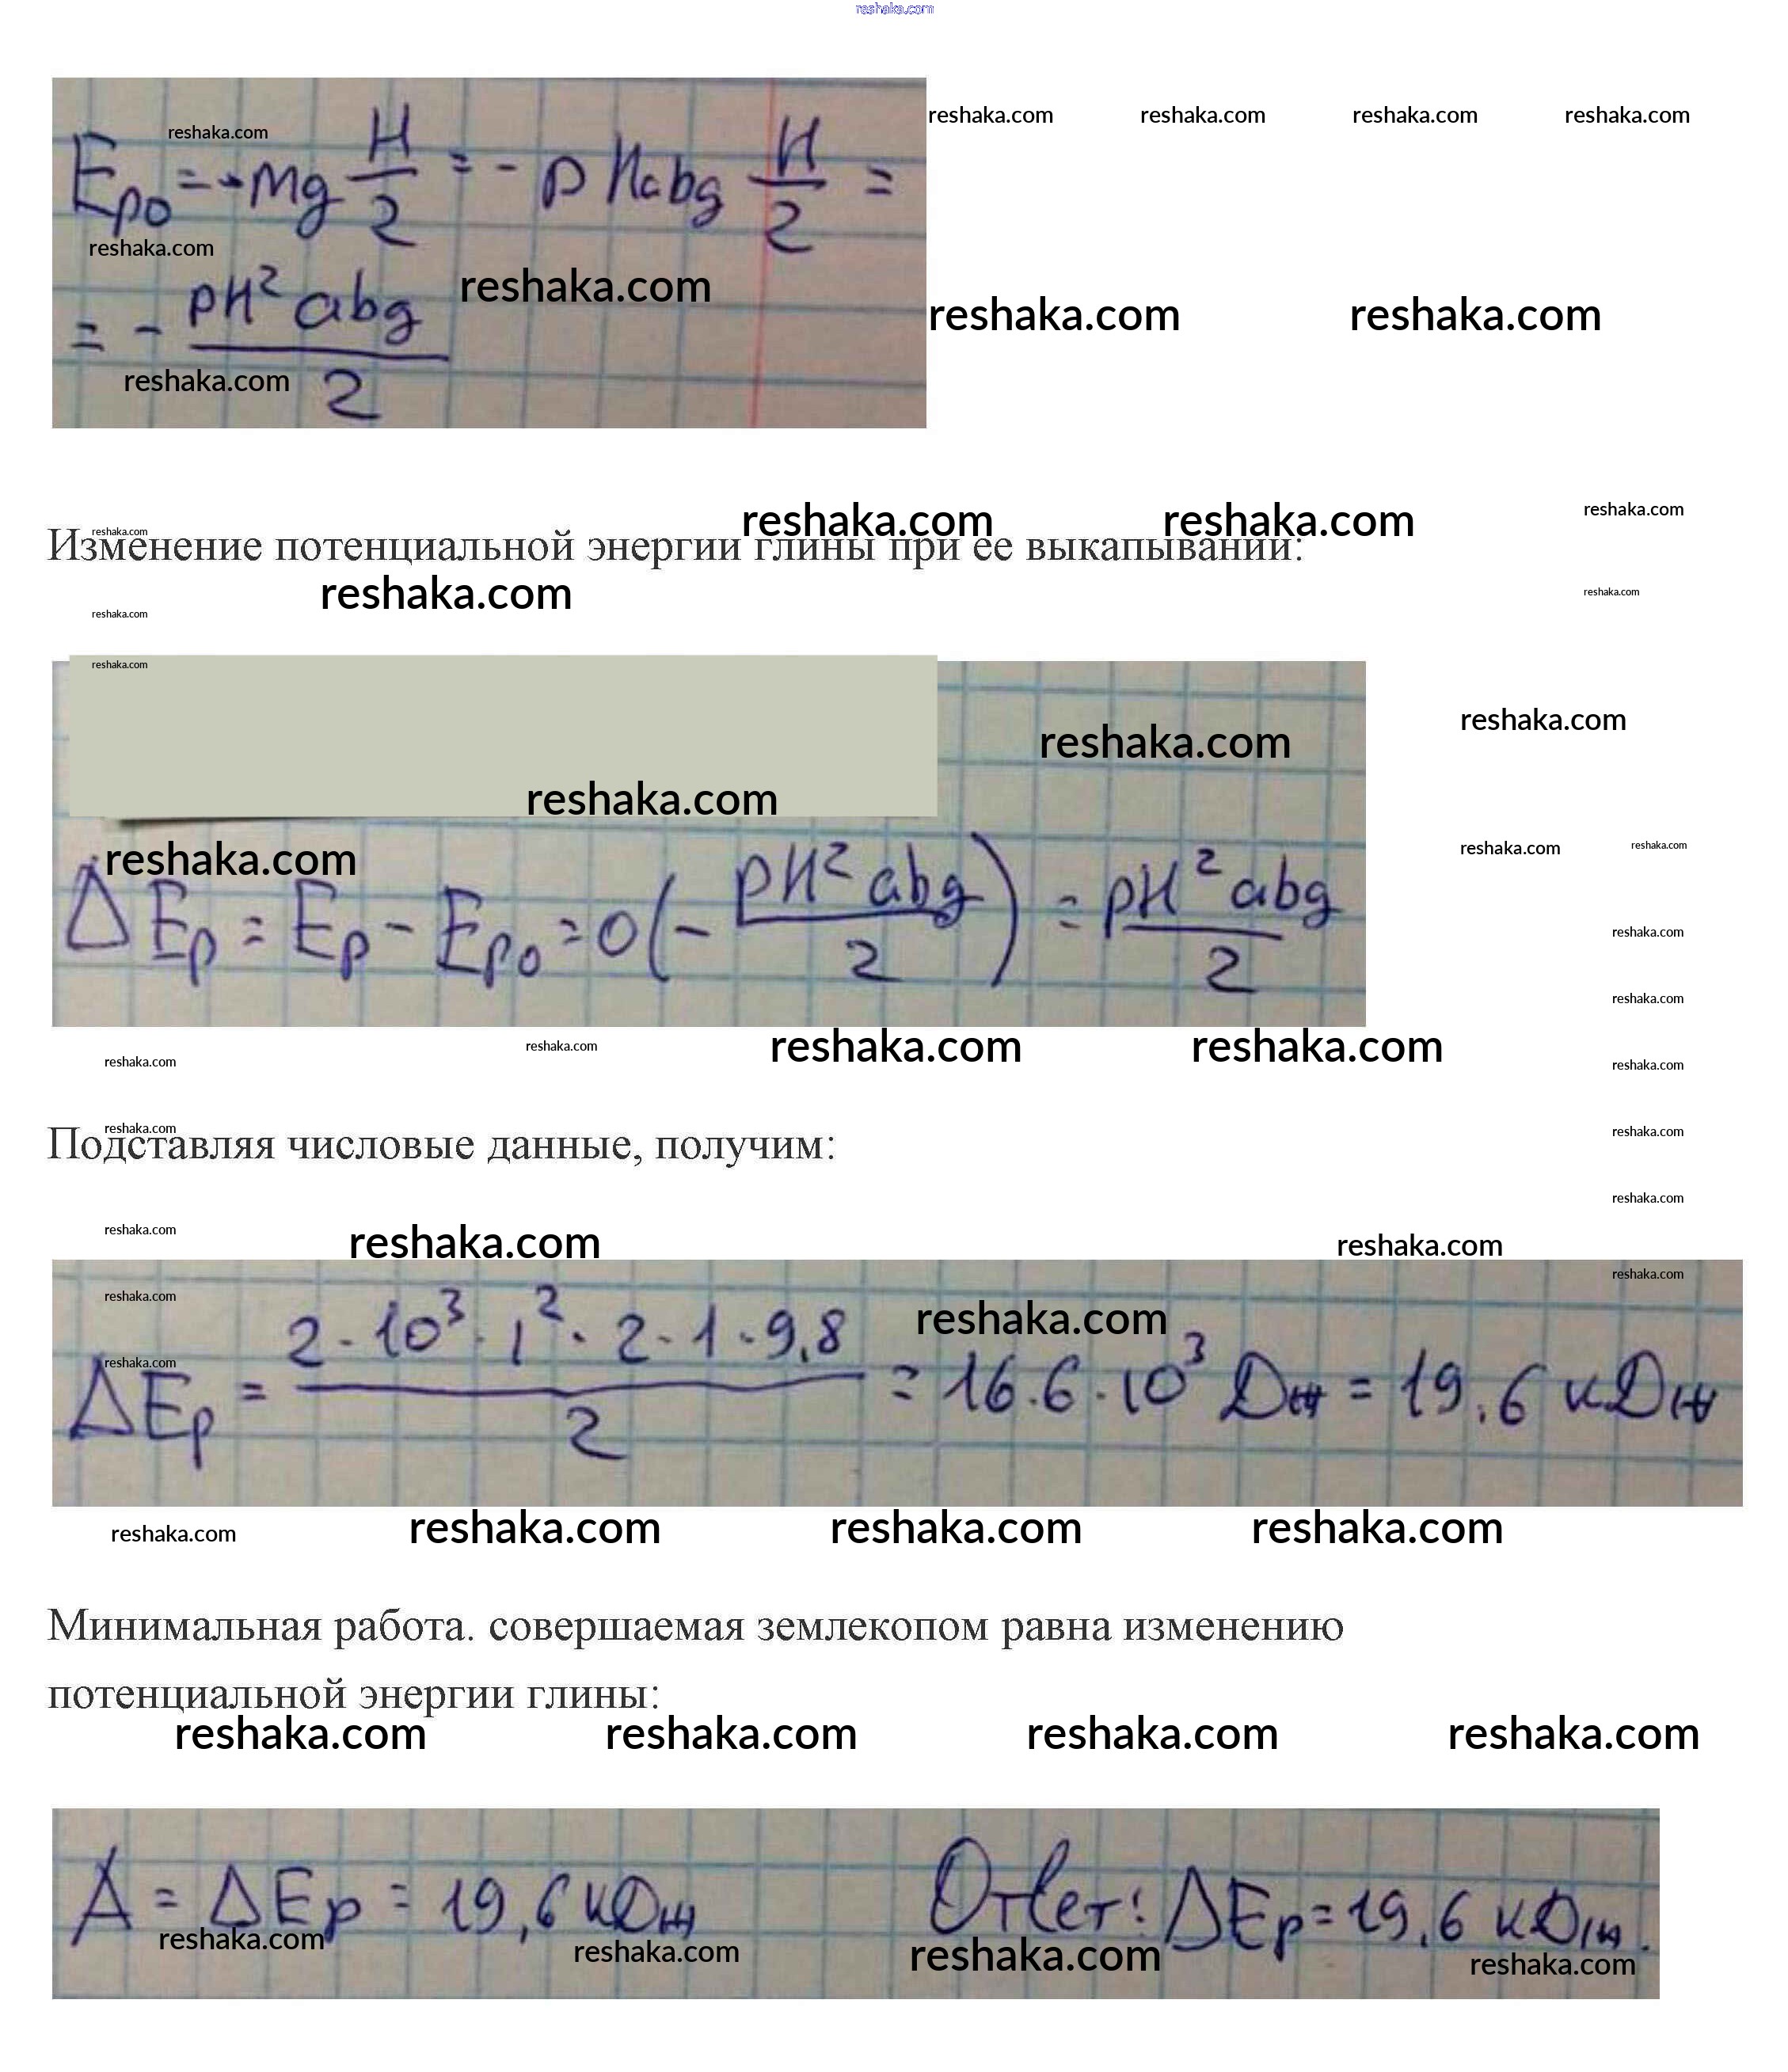 reshaka.com
reshaka.com reshaka.com reshaka.com reshaka.com
reshaka.com
Ep0 = -mg H/2 = - ρ Habg H/2 =
reshaka.com
reshaka.com reshaka.com reshaka.com
= - ρH² abg / 2
reshaka.com
reshaka.com reshaka.com reshaka.com
reshaka.com
Изменение потенциальной энергии глины при ее выкапывании:
reshaka.com reshaka.com
reshaka.com
reshaka.com
reshaka.com reshaka.com
reshaka.com
reshaka.com reshaka.com reshaka.com
ΔEp = Ep - Ep0 = 0(- ρH² abg / 2) = ρH² abg / 2
reshaka.com
reshaka.com
reshaka.com reshaka.com reshaka.com
reshaka.com reshaka.com
reshaka.com reshaka.com
Подставляя числовые данные, получим:
reshaka.com
reshaka.com reshaka.com reshaka.com
reshaka.com
reshaka.com reshaka.com
reshaka.com
ΔEp = 2·10³·1²·2·1·9,8 / 2 = 16.6·10³ Дж = 19,6 кДж
reshaka.com reshaka.com reshaka.com reshaka.com
Минимальная работа. совершаемая землекопом равна изменению
потенциальной энергии глины:
reshaka.com reshaka.com reshaka.com reshaka.com
A = ΔEp = 19,6 кДж Ответ: ΔEp = 19,6 кДж.
reshaka.com reshaka.com reshaka.com reshaka.com